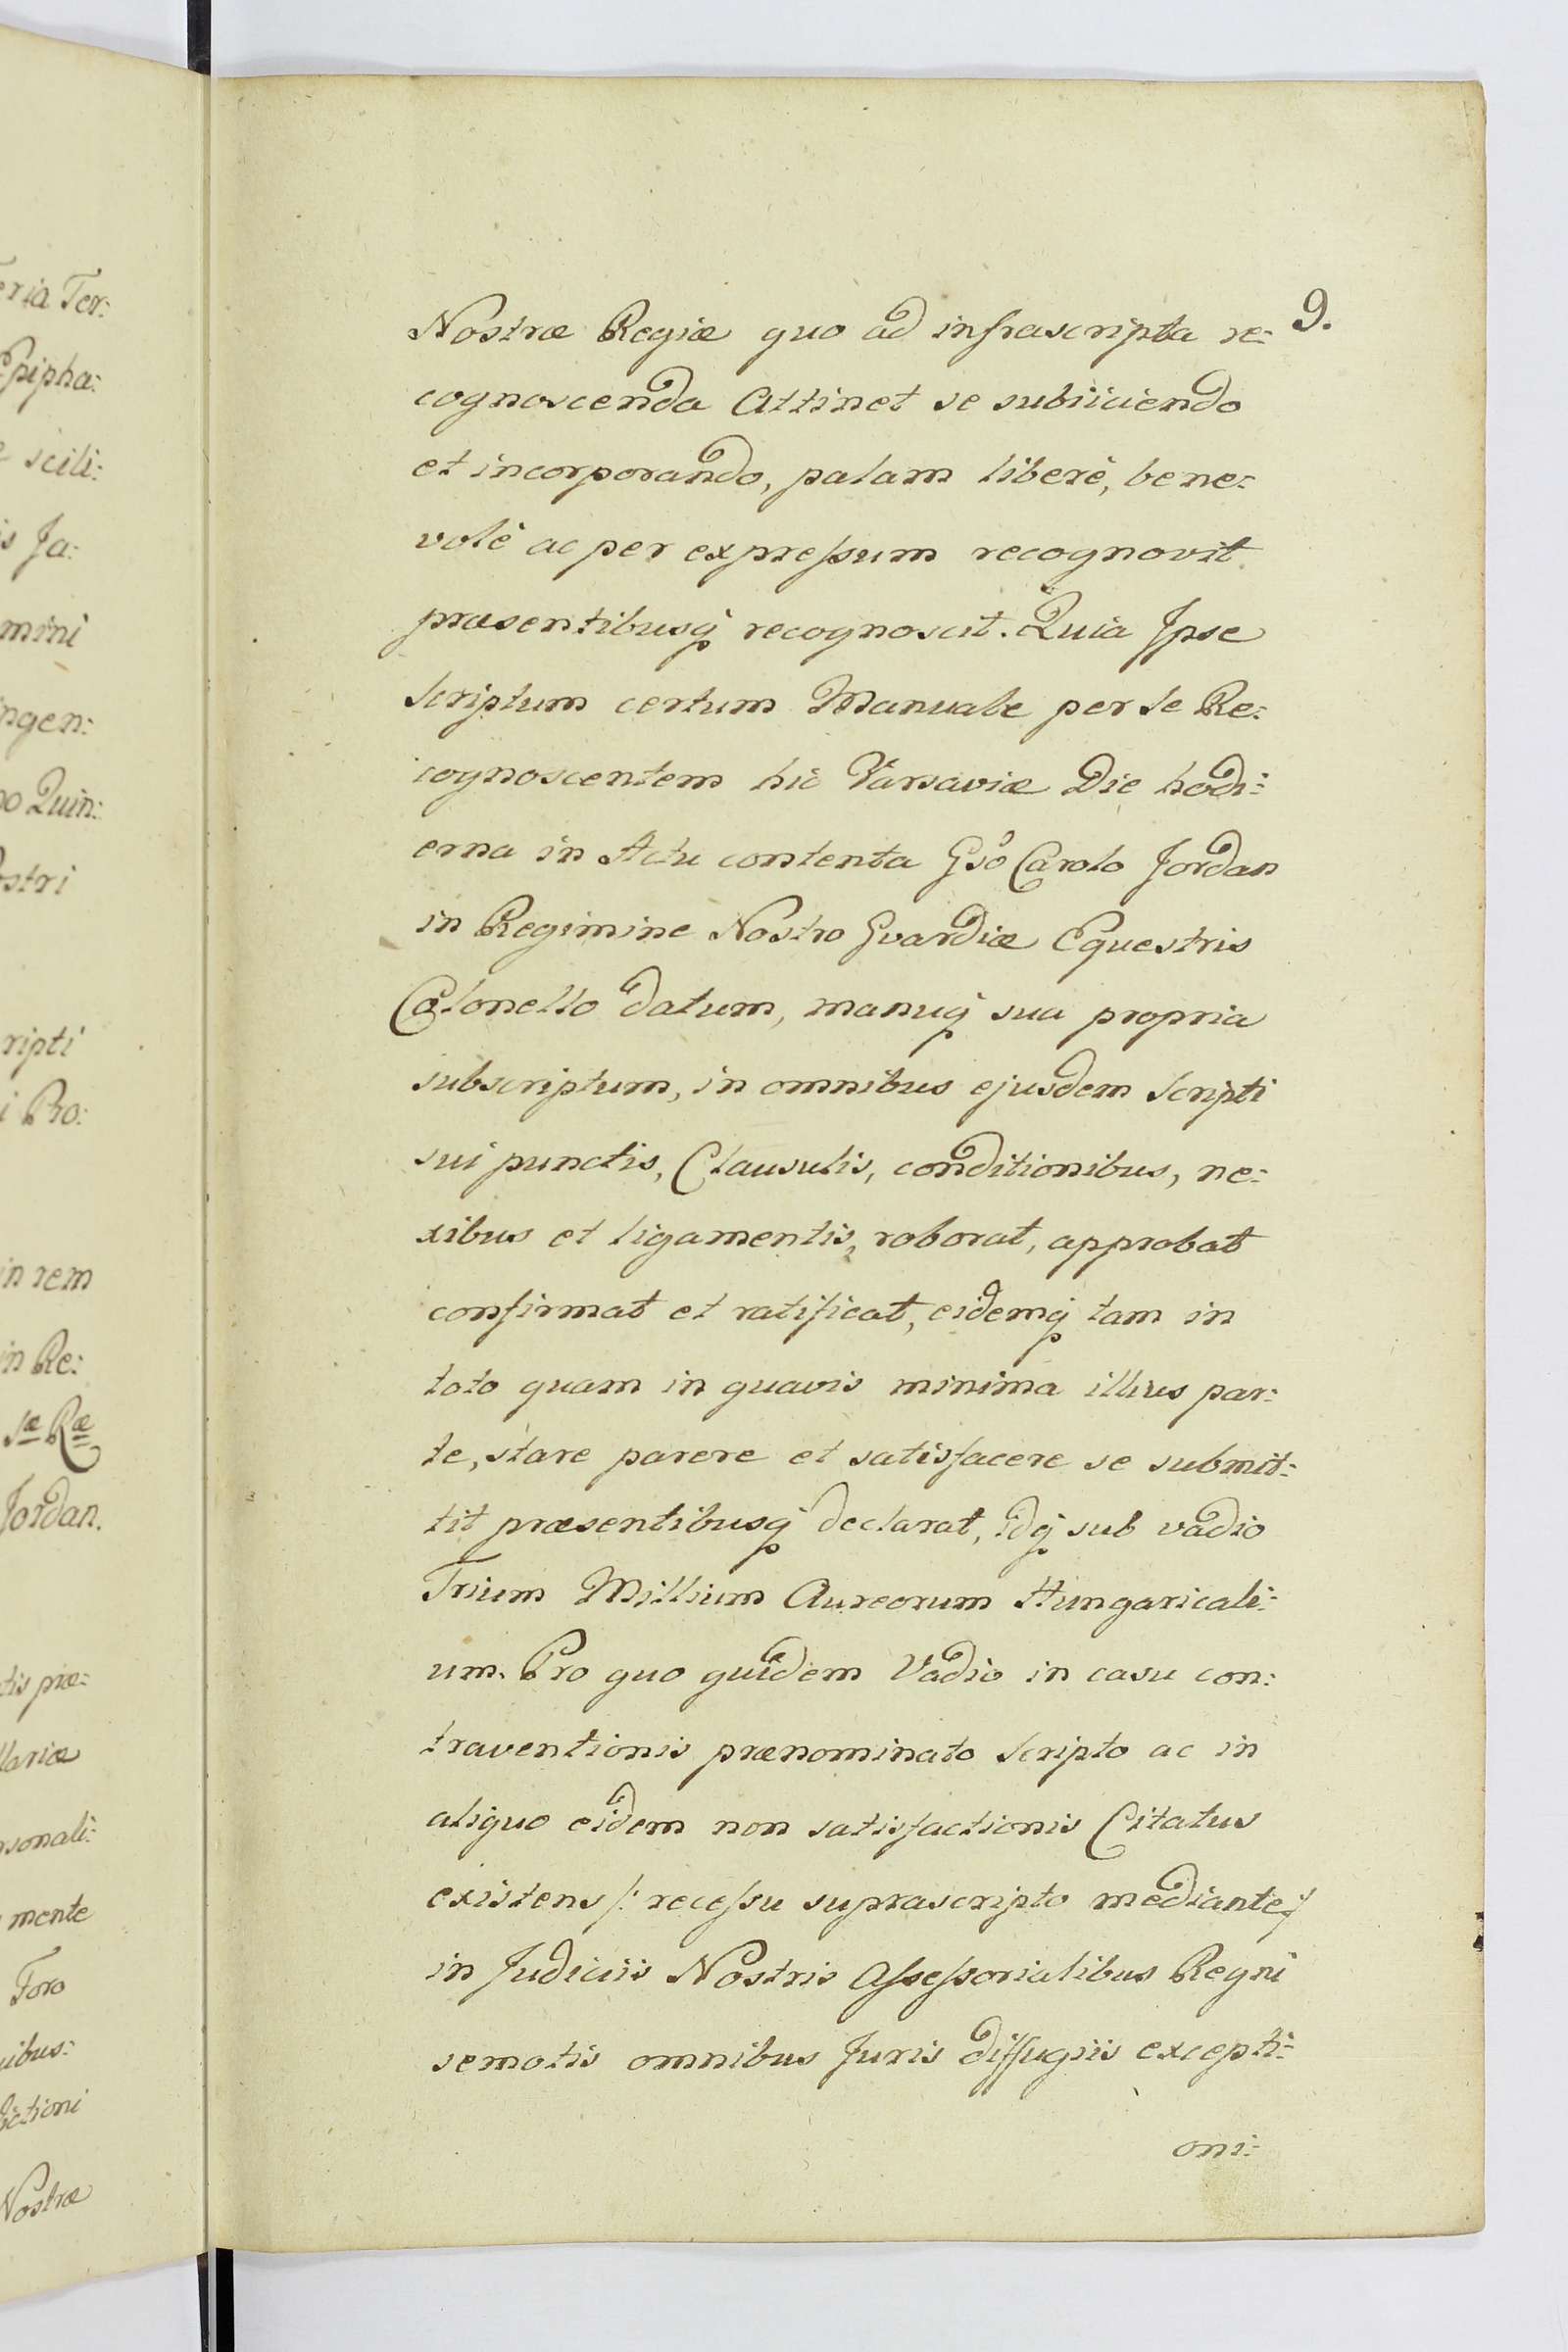 eria Ter:
Epipha:
e scili:
is Ja:
mini
ingen:
no Quin:
ostri
ripti
i Pro:
in rem
in Re:
sæ Ræ
Jordan.
tis præ:
llariæ
rsonali:
mente
Foro
uibus:
dictioni
Nostræ
9.
Nostræ Regiæ quo ad infrascripta re:
cognoscenda Attinet se subiiciendo
et incorporando, palam liberè, bene:
volè ac per expressum recognovit
præsentibusq recognoscit. Quia Ipse
scriptum certum Manuale per se Re:
cognoscentem hic Varsaviæ Die hodi:
erna in Actu contenta Gso Carolo Jordan
in Regimine Nostro Gvardiæ Equestris
Colonello datum, manuq sua propria
subscriptum, in omnibus ejusdem scripti
sui punctis, Clausulis, conditionibus, ne:
xibus et ligamentis, roborat, approbat
confirmat et ratificat, eidemq tam in
toto quam in quavis minima illius par:
te, stare parere et satisfacere se submit:
tit præsentibusq declarat, idq sub vadio
Trium Millium Aureorum Hungaricali:
um. Pro quo quidem Vadio in casu con:
traventionis prænominato scripto ac in
aliquo eidem non satisfactionis Citatus
existens /: recessu suprascripto mediante :/
in Judiciis Nostris Assessorialibus Regni
semotis omnibus Juris diffugiis excepti:
oni: